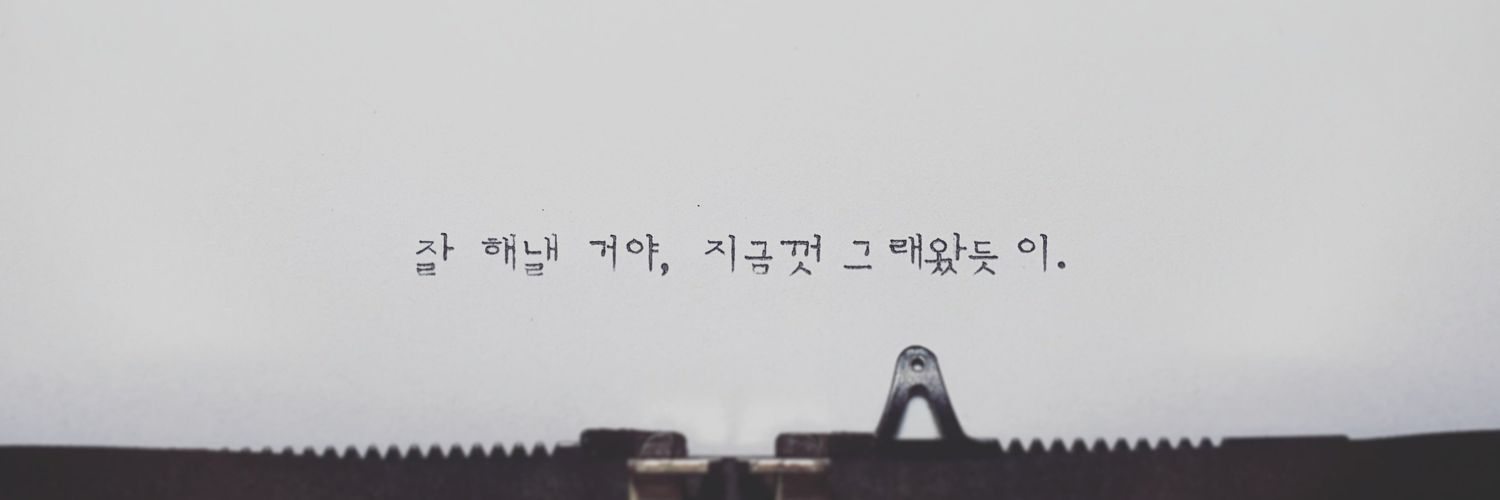 잘 해낼 거야, 지금껏 그래왔듯 이.